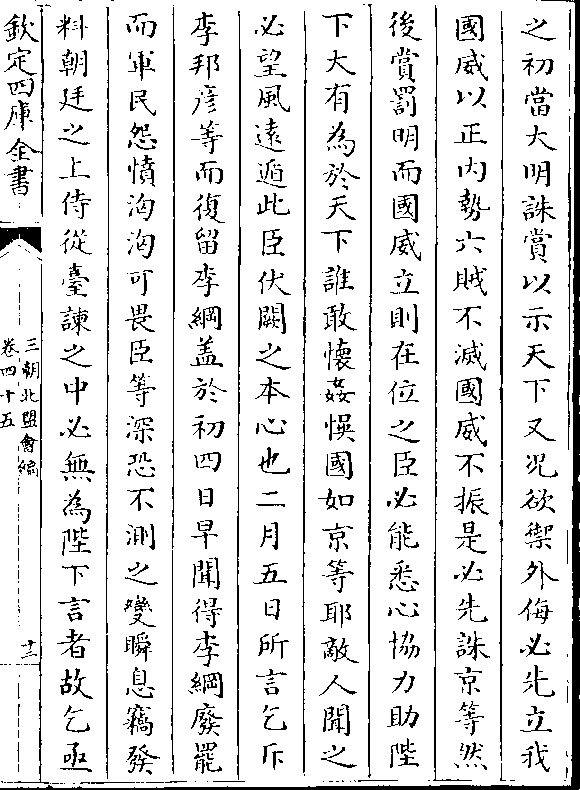 之初當大明誅賞以示天下又况欲禦外侮必先立我
國威以正内勢六賊不滅國威不振是必先誅京等然
後賞罰明而國威立則在位之臣必能悉心協力助陛
下大有為於天下誰敢懷姦悞國如京等耶敵人聞之
必望風逺遁此臣伏闕之本心也二月五日所言乞斥
李邦彦等而復留李綱盖於初四日早聞得李綱廢罷
而軍民怨憤洶洶可畏臣等深恐不測之變瞬息竊發
料朝廷之上侍從臺諫之中必無為陛下言者故乞亟
欽定四庫全書
三朝北盟會編
卷四十五
十三